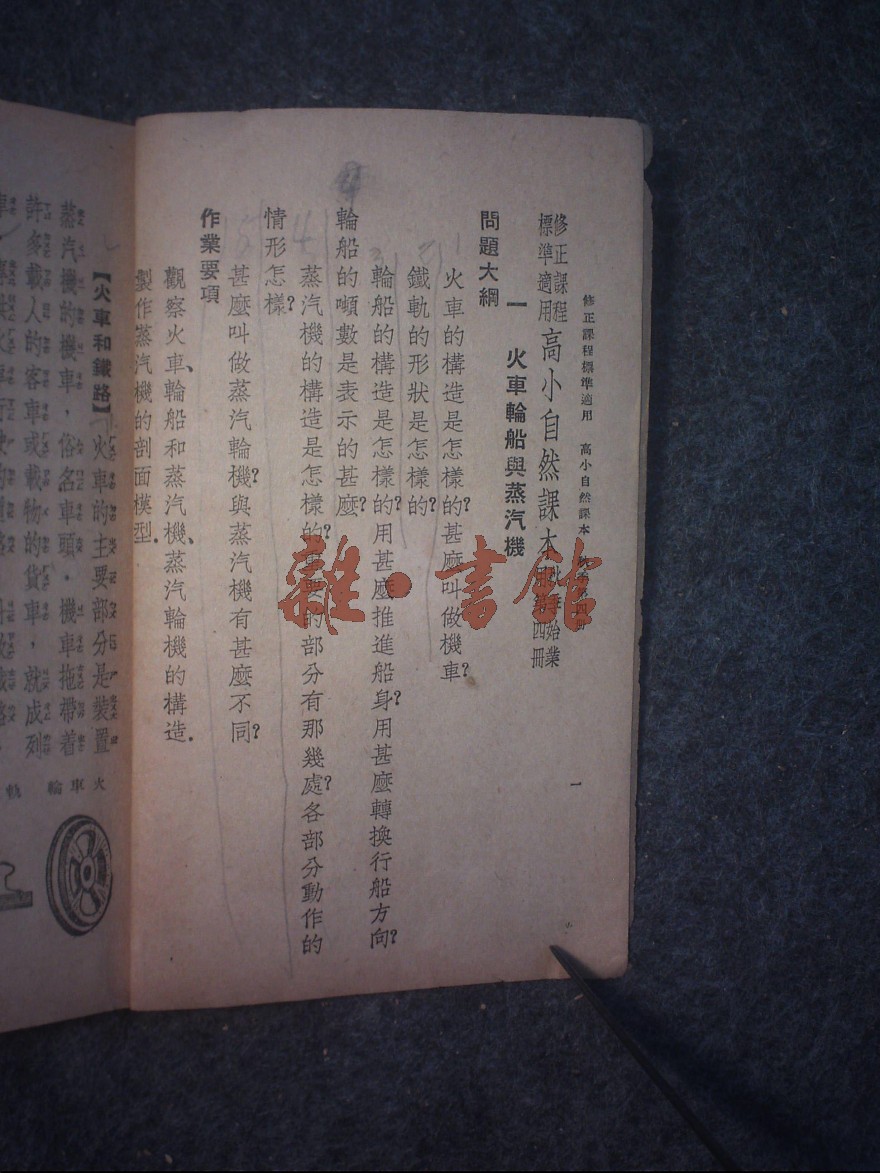 修正課程標準適用　高小自然課本　秋季第四冊
一
修正課程
標準適用
高小自然課本
秋季始業
用第四冊
一　火車輪船與蒸汽機
問題大綱
火車的構造是怎樣的?甚麼叫做機車?
鐵軌的形狀是怎樣的?
輪船的構造是怎樣的?用甚麼推進船身?用甚麼轉換行船方向?
輪船的噸數是表示的甚麼?
蒸汽機的構造是怎樣的?重要的部分有那幾處?各部分動作的
情形怎樣?
甚麼叫做蒸汽輪機?與蒸汽機有甚麼不同?
作業要項
觀察火車、輪船和蒸汽機、蒸汽輪機的構造.
製作蒸汽機的剖面模型.
【火車和鐵路】火車的主要部分是裝置
蒸汽機的機車，俗名車頭．機車拖帶着
許多載人的客車或載物的貨車，就成列
火車輪
軌
雜·書館